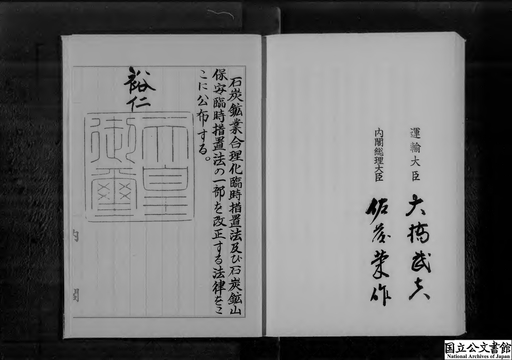 運輸大臣 大橋武夫
内閣総理大臣 佐藤榮作
石炭鉱業合理化臨時措置法及び石炭鉱山
保安臨時措置法の一部を改正する法律をこ
こに公布する。
裕仁
天皇
御璽
国立公文書館
National Archives of Japan